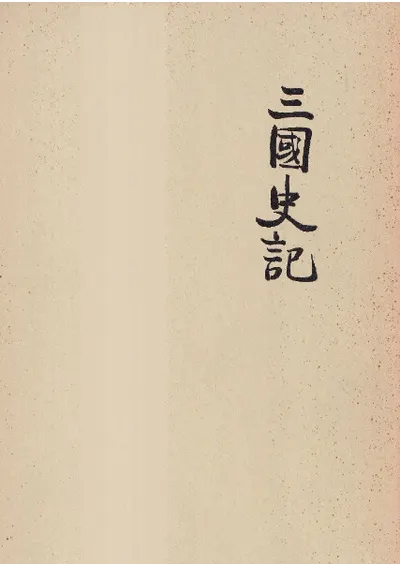 三國史記